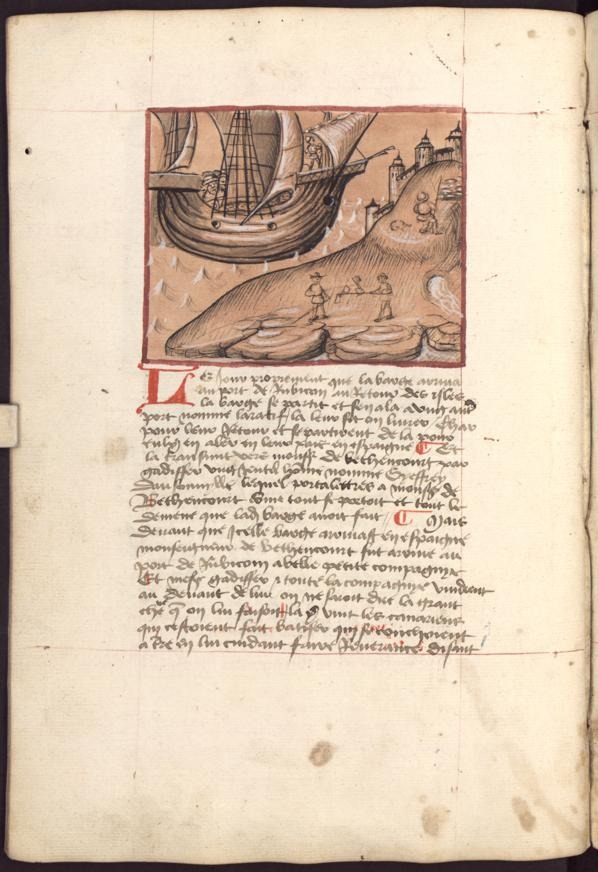 Le Jour proprement que la barge arriua
au port de Rubicon au Retour des isles
la barge se partit et sen ala a dung aut
port nomme laratif / la leur fit on liurer char
pour leur Retour et se partirent de la pour
en aler en leur pais en espaigne ¶ Et
la vers monsr de bethencourt par
gadiffer vng gentil home nomme Geffroy
dausonuille lequel porta lettres a monsr de
Bethencourt tout se portoit et tout le
demene que lad barge auoit fait // ¶ Mais
deuant que Jcelle barge arriuast en espaigne
monseigneur de Bethencourt fut arriue au
port de Rubicon a belle petite compagnye
Et messr gadiffer & toute la compagnye vindrent
au deuant de luy on ne saroit dire la grant
chre q on lui faisoit la vint les canariens
qui cestoient fait batiser qui se couchoient
a tre en lui cuidant faire Reuerance disant